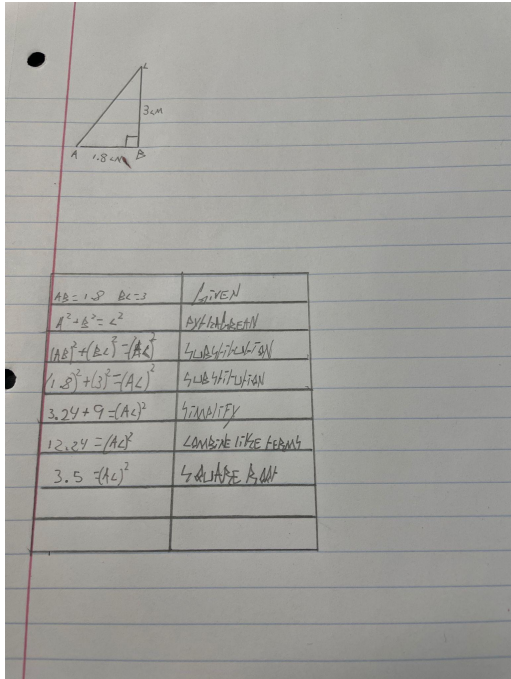 C
3cm
A 1.8cm B
AB = 1.8 BC = 3 GIVEN
A² + B² = C² PYTHAGREAN
(AB)² + (BC)² = (AC)² SUBSTITUTION
(1.8)² + (3)² = (AC)² SUBSTITUTION
3.24 + 9 = (AC)² SIMPLIFY
12.24 = (AC)² COMBINE LIKE TERMS
3.5 = (AC)² SQUARE ROOT